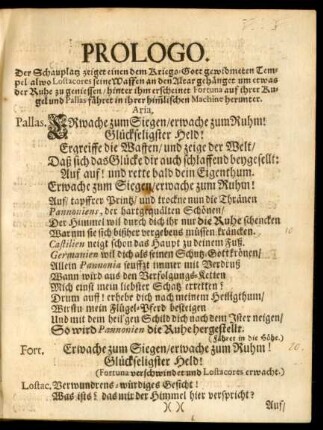 PROLOGO.
Der Schauplatz zeiget einen dem Kriegs-Gott gewidmeten Tem-
pel allwo Lostacores seine Waffen an den Altar gehänget um etwas
der Ruhe zu geniessen/ hinter ihm erscheinet Fortuna auf ihrer Ku-
gel und Pallas fähret in ihrer himlischen Machine herunter.
Aria.
Pallas. ERwache zum Siegen/ erwache zum Ruhm!
Glückseligster Held!
Ergreiffe die Waffen/ und zeige der Welt/
Daß sich das Glücke dir auch schlaffend beygesellt:
Auf auf! und rette bald dein Eigenthum.
Erwache zum Siegen/ erwache zum Ruhm!
Auf/ tapffrer Printz/ und trockne nun die Thränen
Pannoniens, der hartgequälten Schönen/
Der Himmel wil durch dich ihr nur die Ruhe schencken
Warum sie sich bißher vergebens müssen kräncken.
Castilien neigt schon das Haupt zu deinem Fuß.
Germanien wil dich als seinen Schutz-Gott krönen/
Allein Pannonia seuffzt immer mit Verdruß
Wann wird aus den Verfolgungs-Ketten
Mich einst mein liebster Schatz erretten?
Drum auff! erhebe dich nach meinem Heiligthum/
Wirstu mein Flügel-Pferd besteigen
Und mit dem heilgen Schild dich nach dem Ister neigen/
So wird Pannonien die Ruhe hergestellt.
(Fähret in die Höhe.)
Fort. Erwache zum Siegen/ erwache zum Ruhm!
Glückseligster Held!
(Fortuna verschwindet und Lostacores erwacht.)
Lostac. Verwundrens-würdiges Gesicht!
Was ists? das mir der Himmel hier verspricht?
)( )( Auf/